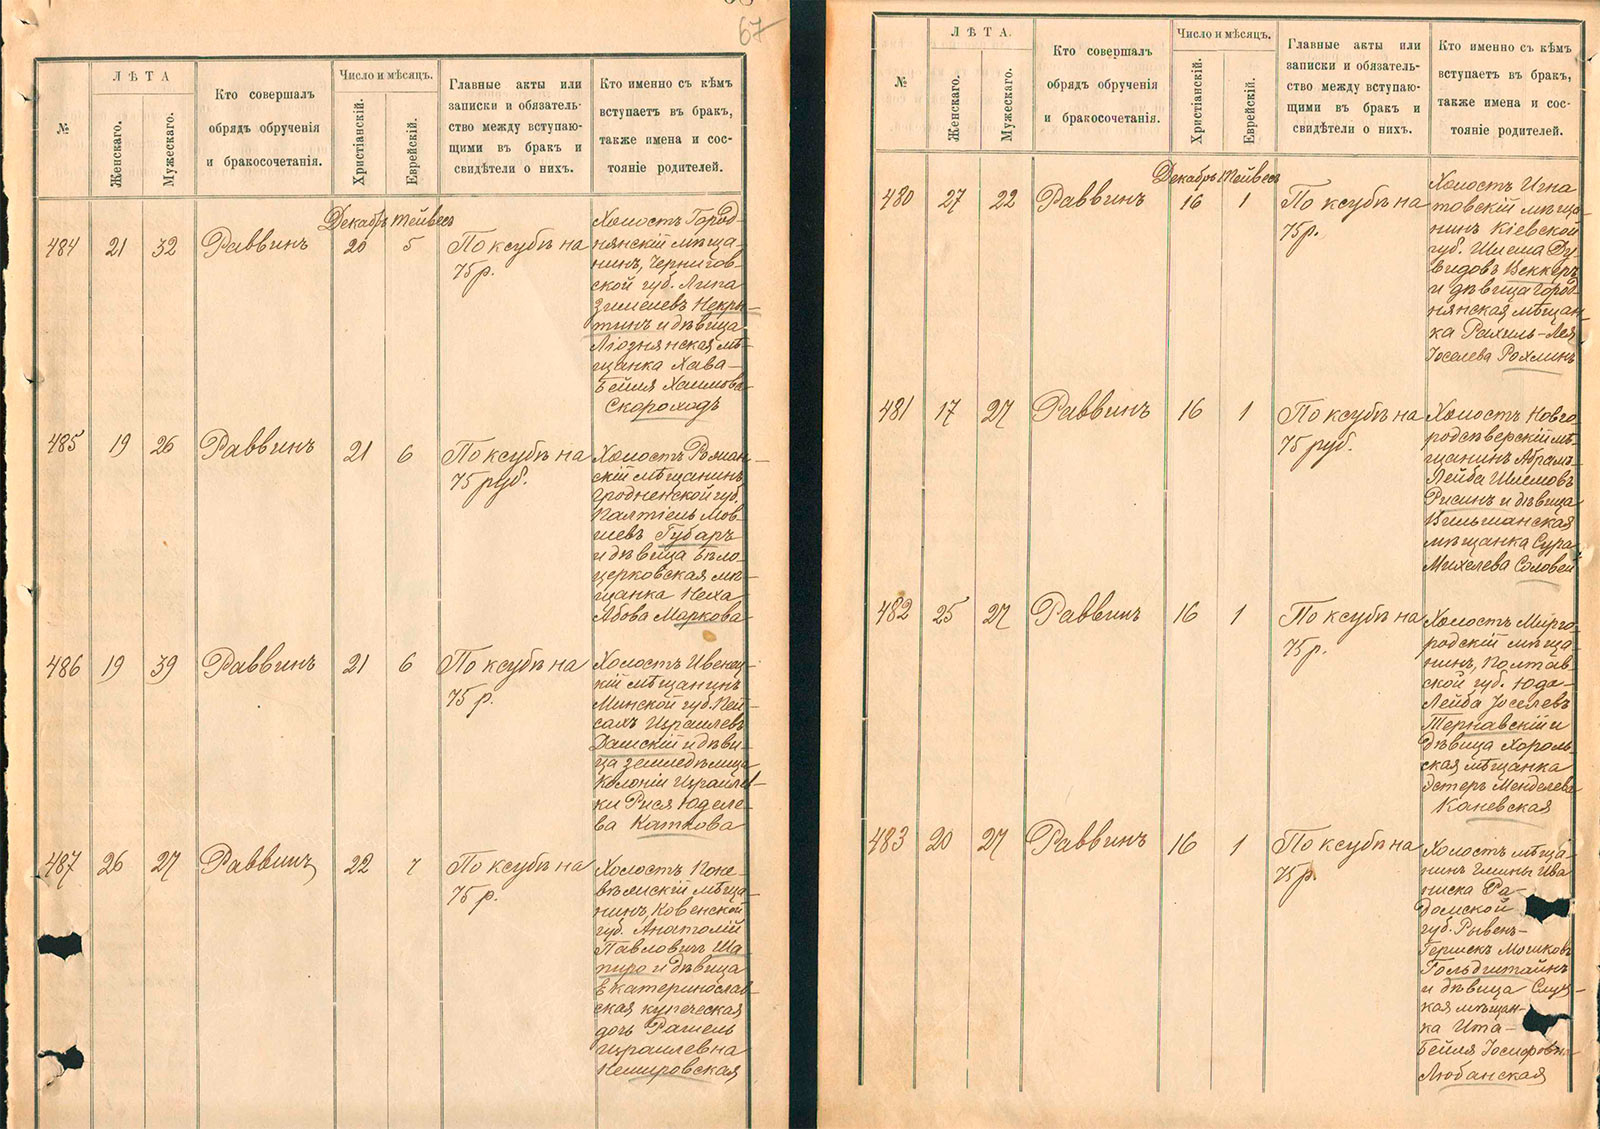 67
№
ЛѢТА
Женскаго.
Мужескаго.
Кто совершалъ
обрядъ обрученія
и бракосочетанія.
Число и мѣсяцъ.
Христіанскій.
Еврейскій.
Главные акты или
записки и обязатель-
ство между вступаю-
щими въ бракъ и
свидѣтели о нихъ.
Кто именно съ кѣмъ
вступаетъ въ бракъ,
также имена и сос-
тояніе родителей.
Декабрь Тейвесъ
484 21 32 Раввинъ 20 5 По ксубѣ на
75 р.
Холостъ Город-
нянскій мѣща-
нинъ, Чернигов-
ской губ. Липа
Зимелевъ Некры-
тинъ и дѣвица
Ліознянская мѣ-
щанка Хава-
Бейля Хаимова
Скороходъ
485 19 26 Раввинъ 21 6 По ксубѣ на
75 руб.
Холостъ Рожан-
скій мѣщанинъ
Гродненской губ.
Палтіель Мов-
шевъ Губаръ
и дѣвица Бѣло-
церковская мѣ-
щанка Неха
Абова Маркова
486 19 39 Раввинъ 21 6 По ксубѣ на
75 р.
Холостъ Ивенец-
кій мѣщанинъ
Минской губ. Пей-
сахъ Израилевъ
Дамскій и дѣви-
ца земледѣлица
колоніи Израилев-
ки Рися Юделе-
ва Каткова
487 26 27 Раввинъ 22 7 По ксубѣ на
75 р.
Холостъ Поке-
вѣжскій мѣща-
нинъ, Ковенской
губ. Анатолій
Павловичъ Ша-
пиро и дѣвица
Екатеринослав-
ская купеческая
дочь Рашель
Израилевна
Немировская
№
ЛѢТА.
Женскаго.
Мужескаго.
Кто совершалъ
обрядъ обрученія
и бракосочетанія.
Число и мѣсяцъ.
Христіанскій.
Еврейскій.
Главные акты или
записки и обязатель-
ство между вступаю-
щими въ бракъ и
свидѣтели о нихъ.
Кто именно съ кѣмъ
вступаетъ въ бракъ,
также имена и сос-
тояніе родителей.
Декабрь Тейвесъ
480 27 22 Раввинъ 16 1 По ксубѣ на
75 р.
Холостъ Игна
товскій мѣща-
нинъ Кіевской
губ. Шлема Ду-
видовъ Веккеръ
и дѣвица Город-
нянская мѣщан-
ка Рахиль-Лея
Іоселева Рохлинъ
481 17 27 Раввинъ 16 1 По ксубѣ на
75 руб.
Холостъ Новго-
родсѣверскій мѣ-
щанинъ Абрамъ-
Лейба Шлемовъ
Рисинъ и дѣвица
Вильшанская
мѣщанка Сура
Михелева Соловей
482 25 27 Раввинъ 16 1 По ксубѣ на
75 р.
Холостъ Мирго-
родскій мѣща-
нинъ, Полтав-
ской губ. Юда-
Лейба Іоселевъ
Тернавскій и
дѣвица Хороль-
ская мѣщанка
Эстеръ Менделева
Каневская
483 20 27 Раввинъ 16 1 По ксубѣ на
75 р.
Холостъ мѣща-
нинъ гмины Ива
ниска Ра-
домской
губ. Рывень-
Гершекъ Мошковъ
Гольдштайнъ
и дѣвица Слуц-
кая мѣщан-
ка Ита-
Бейля Іосифовна
Любанская